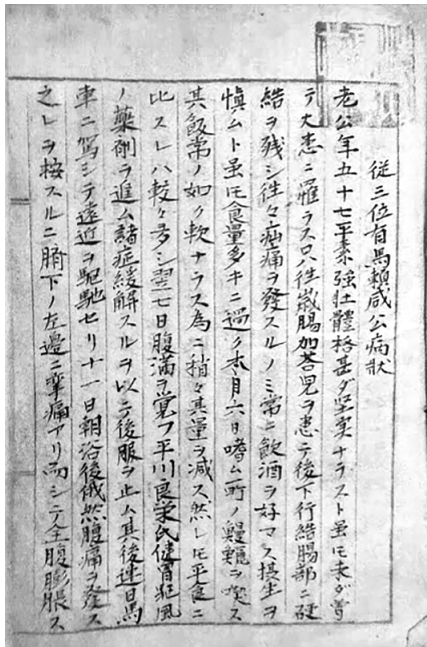 従三位有馬頼咸公病状
老公年五十七平素強壮體格甚ダ堅実ナラスト雖𪜈未ダ曽
テ大患ニ罹ラス只往歳腸加答児ヲ患テ後下行結腸部ニ硬
結ヲ残シ往々疝痛ヲ發スルノミ常ニ飲酒ヲ好マス摂生ヲ
慎ムト雖𪜈食量多キニ過ク本月六日嗜ム所ノ鰻鱺ヲ喫ス
其飯常ノ如ク軟ナラス為ニ稍々其量ヲ减ス然レ𪜈平食ニ
比スレハ較々多シ翌七日腹満ヲ覚フ平川良栄氏健胃駆風
ノ薬剤ヲ進ム諸症緩解スルヲ以テ後服ヲ止ム其後連日馬
車ニ駕シテ遠近ヲ駈馳セリ十一日朝浴後俄然腹痛ヲ發ス
之レヲ按スルニ臍下ノ左邉ニ攣痛アリ而シテ全腹膨脹ス